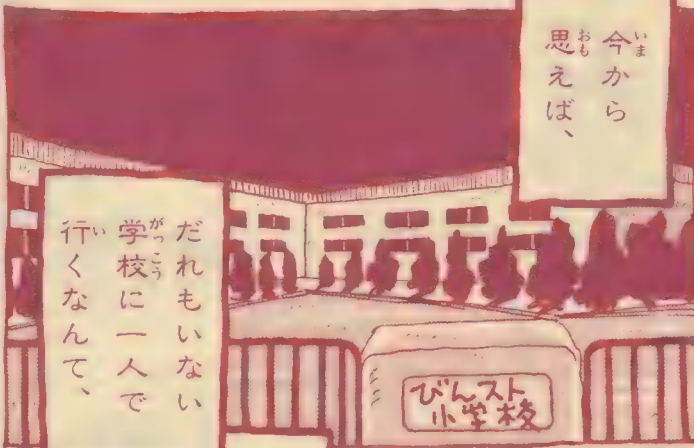 今から
思えば、
だれもいない
学校に一人で
行くなんて、
びんスト
小学校